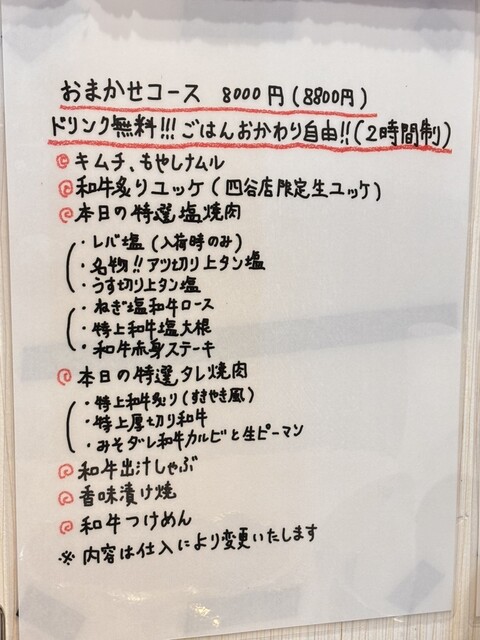 おまかせコース 8000円(8800円)
ドリンク無料!!!ごはんおかわり自由!!(2時間制)
キムチ、もやしナムル
和牛炙りユッケ(四谷店限定生ユッケ)
本日の特選塩焼肉
・レバ塩(入荷時のみ)
・名物!!アツ切り上タン塩
・うす切り上タン塩
・ねぎ塩和牛ロース
・特上和牛塩大根
・和牛赤身ステーキ
本日の特選タレ焼肉
・特上和牛炙り(すきやき風)
・特上厚切り和牛
・みそダレ和牛カルビと生ピーマン
和牛出汁しゃぶ
香味漬け焼
和牛つけめん
※内容は仕入により変更いたします